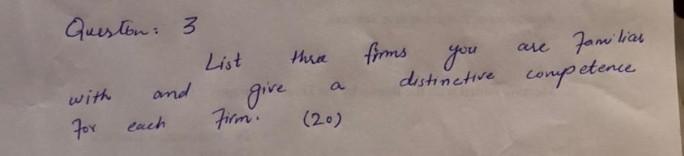 Question: 3
List three firms you are familiar
with and give a distinctive competence
for each firm. (20)